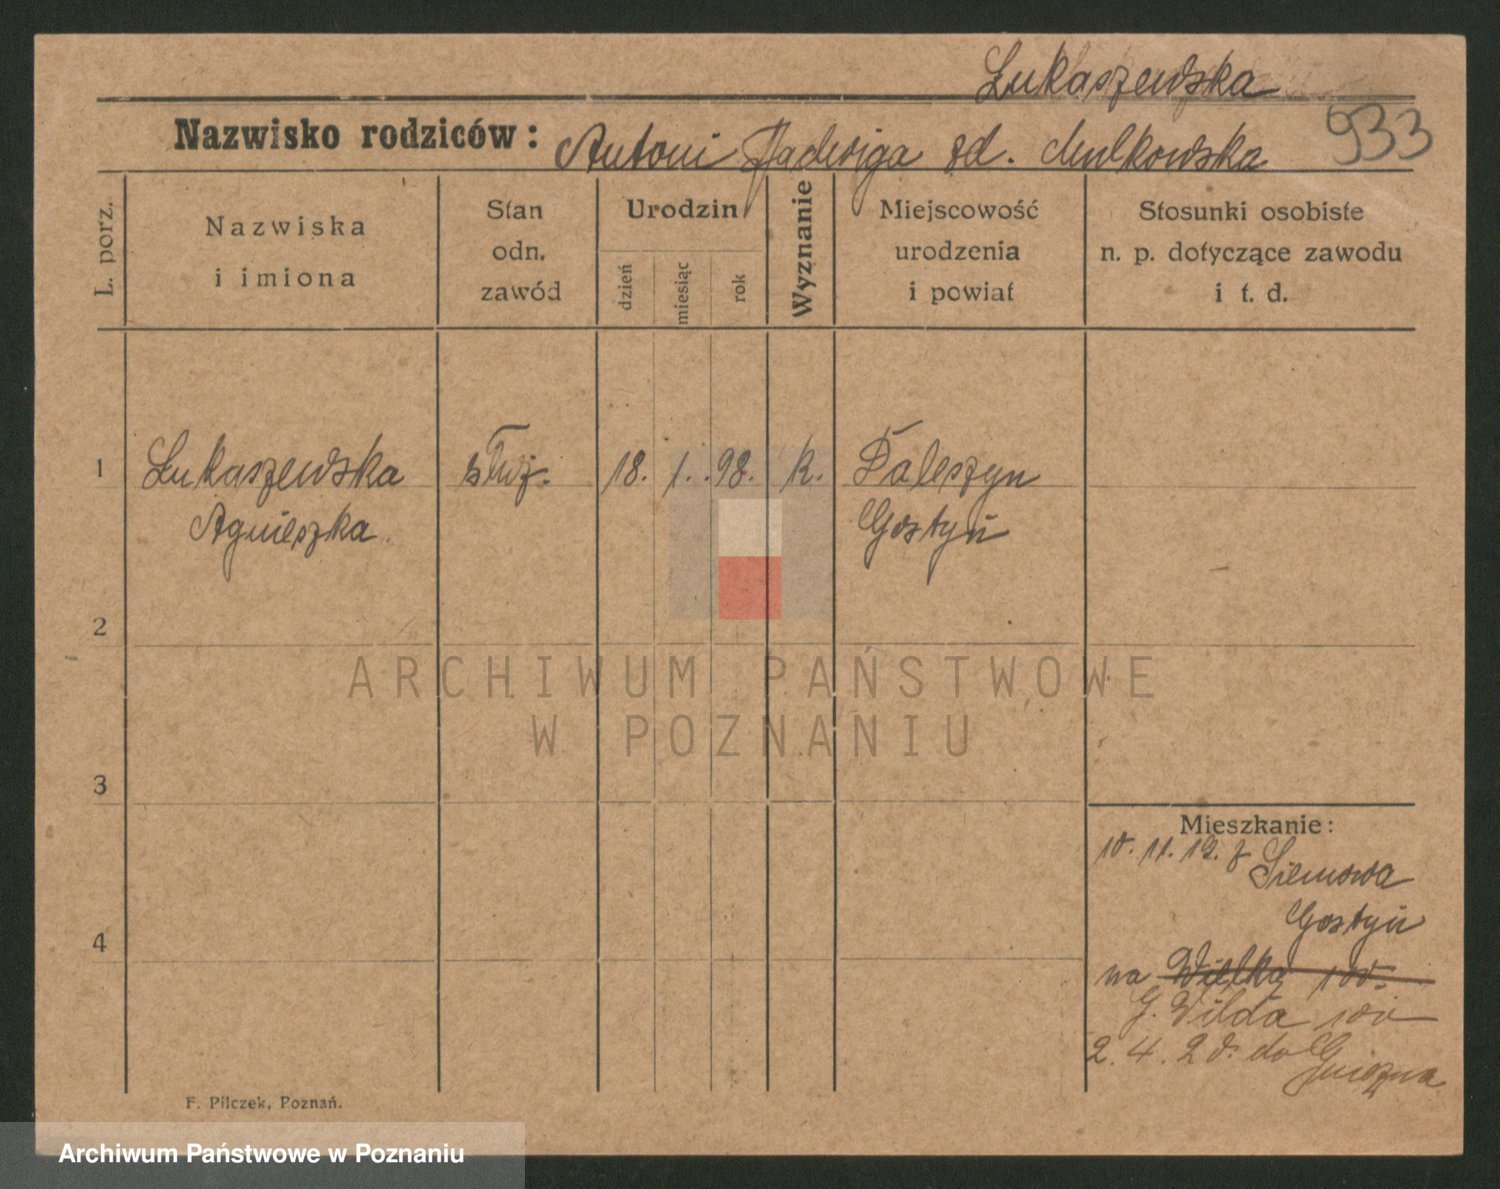 Łukaszewska
Nazwisko rodziców: Antoni Jadwiga zd. 933
L. porz.
Nazwiska
i imiona
Stan
odn.
zawód
Urodzin
dzień
miesiąc
rok
Wyznanie
Miejscowość
urodzenia
i powiat
Stosunki osobiste
n. p. dotyczące zawodu
i t. d.
1 Łukaszewska służ. 18. 1. 98. k. Daleszyn
Agnieszka. Gostyń
2
ARCHIWUM PAŃSTWOWE
W POZNANIU
3
Mieszkanie:
10. 11. 19. z Siemowa
Gostyń
4
na Wielka 100.
G. Wilda 100
2. 4. 20. do Gniezna
F. Pilczek, Poznań.
Archiwum Państwowe w Poznaniu